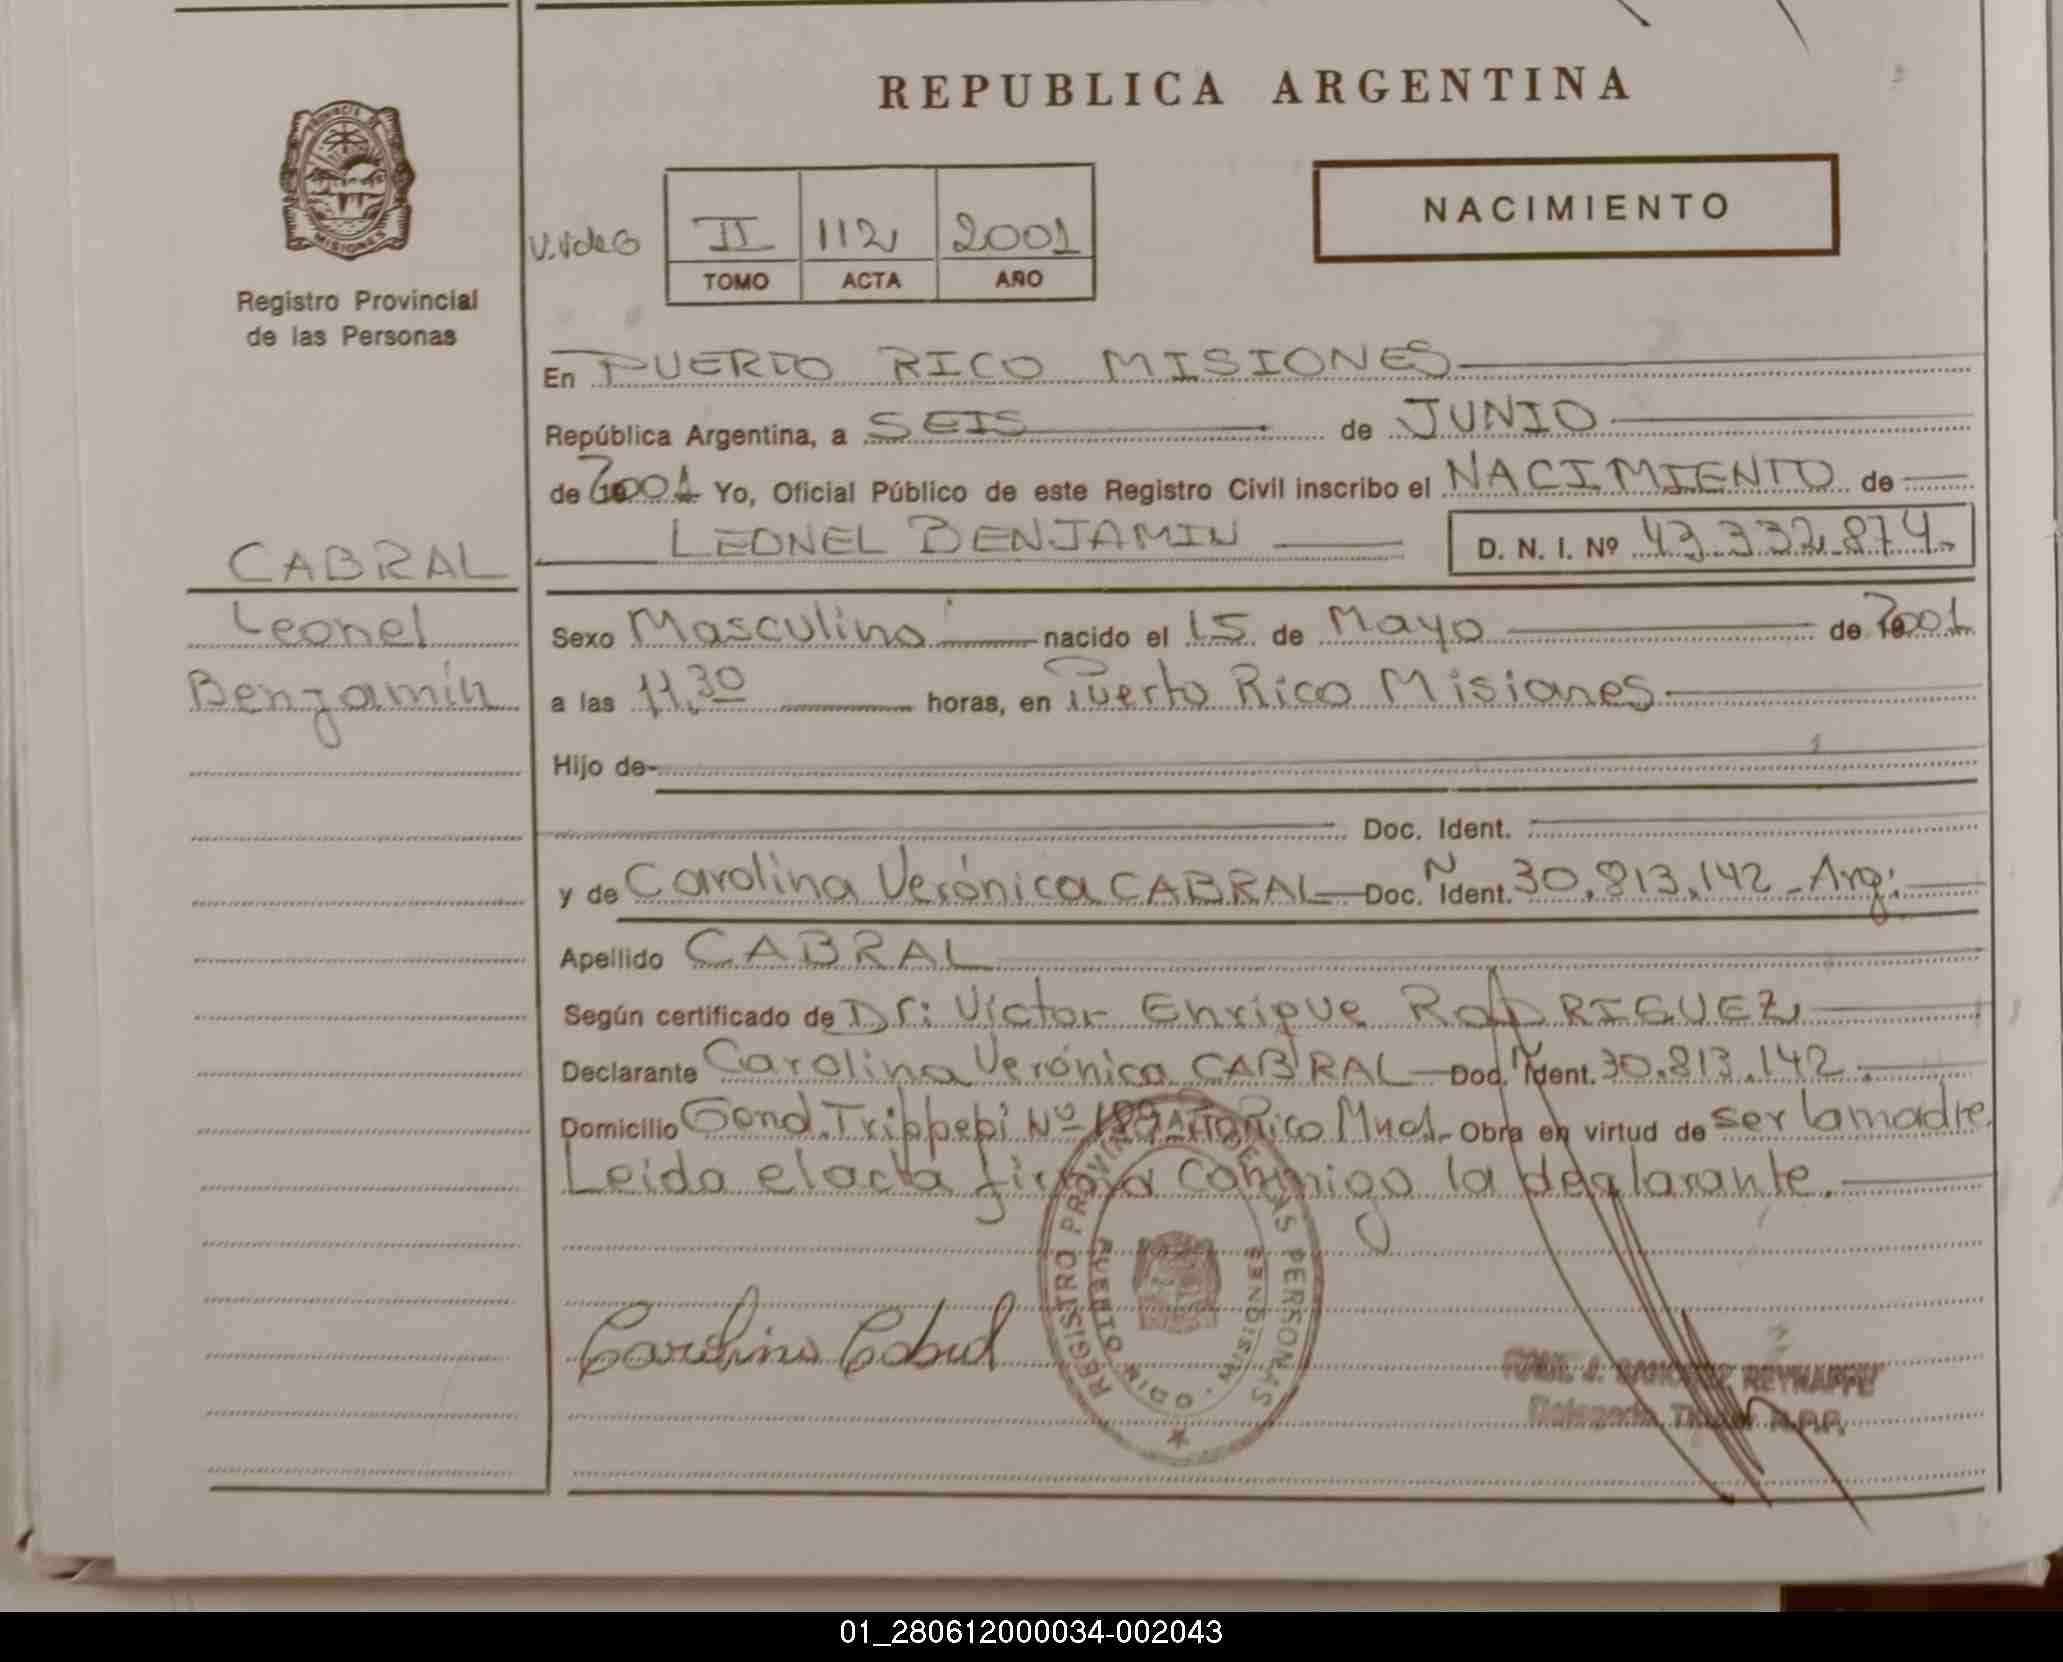 REPUBLICA ARGENTINA
PROVINCIA DE MISIONES
Registro Provincial
de las Personas
NACIMIENTO
II 112 2001
TOMO ACTA AÑO
En PUERTO RICO MISIONES
República Argentina, a SEIS de JUNIO
de 2001 Yo, Oficial Público de este Registro Civil inscribo el NACIMIENTO de
LEONEL BENJAMIN D. N. I. Nº 43.332.874.
CABRAL
Leonel
Benjamín
Sexo Masculino nacido el 15 de Mayo de 2001
a las 11,30 horas, en Puerto Rico Misiones
Hijo de
Doc. Ident.
y de Carolina Verónica CABRAL Doc. N Ident. 30.813.142 - Arg.
Apellido CABRAL
Según certificado de Dr: Víctor Enrique RODRIGUEZ
Declarante Carolina Verónica CABRAL Doc. N Ident. 30.813.142.
Domicilio Gond. Trippepi Nº 189 Pto Rico Mnes. Obra en virtud de ser la madre
Leida el acta firma conmigo la declarante.
Carolina Cabral
REGISTRO PROVINCIAL DE LAS PERSONAS
PUERTO RICO - MISIONES
J. SANCHEZ REYNAFFE
Delegado Titular R.P.P.
01_280612000034-002043